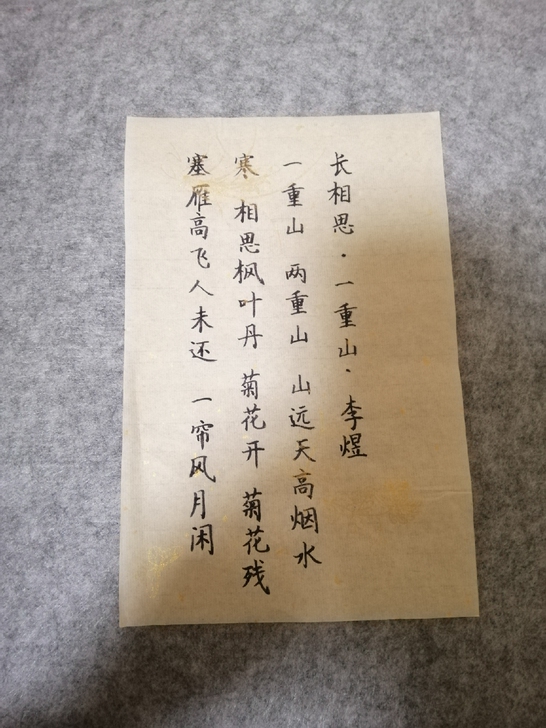 长相思·一重山·李煜
一重山 两重山 山远天高烟水
寒 相思枫叶丹 菊花开 菊花残
塞雁高飞人未还 一帘风月闲